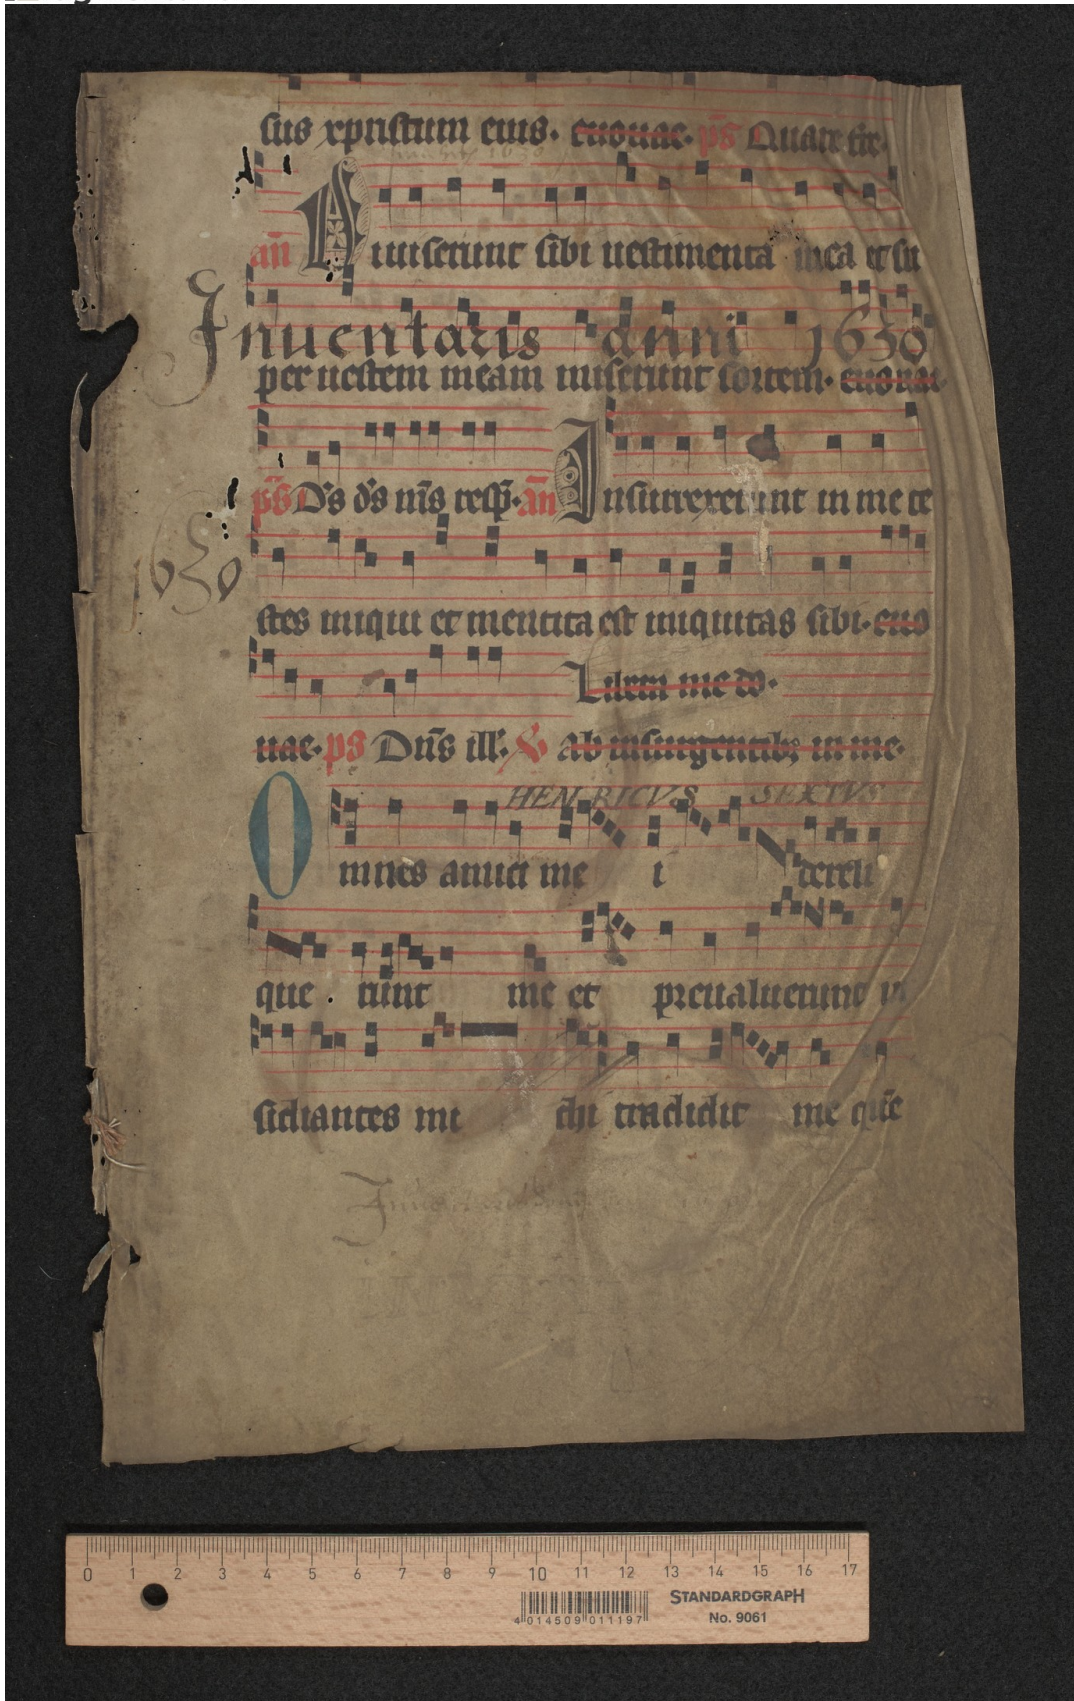 sus xpristum eius. euouae. ps Quare fre
an Diuiserunt sibi uestimenta mea et su
Inuentaris anni 1630
per uestem meam miserunt sortem. euouae.
ps Ds ds ms resp. an Insurrexerunt in me te
1630
stes iniqui et mentita est iniquitas sibi. euo
Libera me do.
uae. ps Dns ill. V ab insurgentib; in me.
HENRICVS SEXTVS
Omnes amici me i dereli
que runt me et preualuerunt in
sidiantes mi chi tradidit me que
0 1 2 3 4 5 6 7 8 9 10 11 12 13 14 15 16 17
4 014509 011197
STANDARDGRAPH
No. 9061